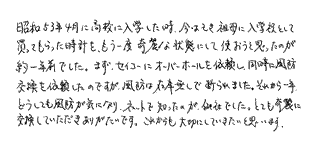 昭和53年4月に高校に入学した時、今はなき祖母に入学祝として
買ってもらった時計を、もう一度奇麗な状態にして使おうと思ったのが
約一年前でした。まず、セイコーにオーバーホールを依頼し、同時に風防
交換を依頼したのですが、風防は在庫無しで断られました。それから一年、
どうしても風防が気になり、ネットで知ったのが、御社でした。とても奇麗に
交換していただきありがたいです。これからも大切にしていきたいと思います。